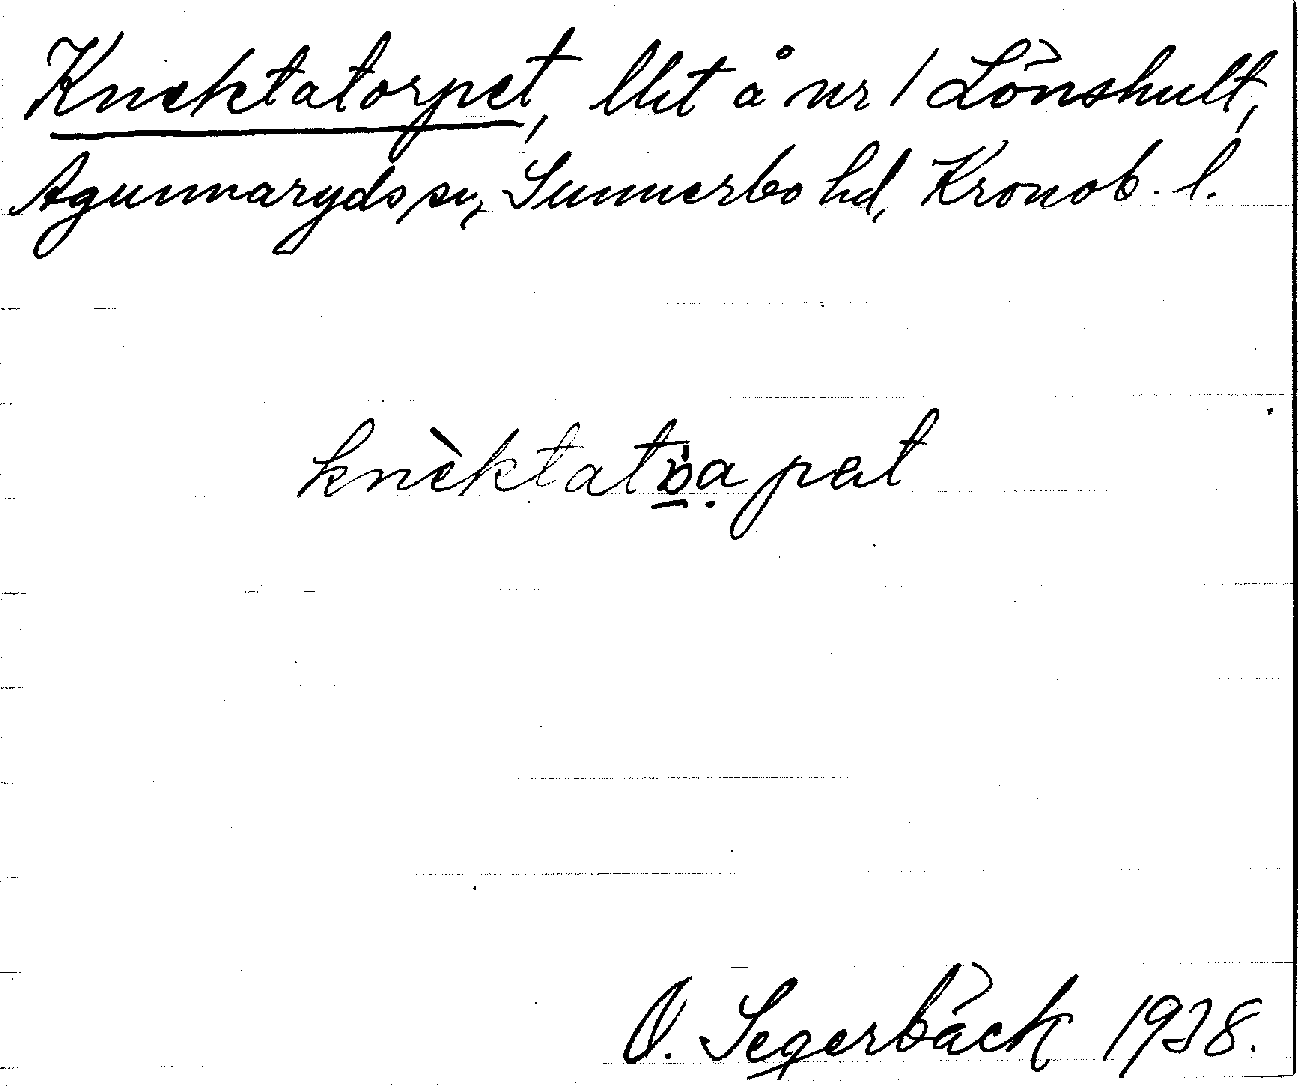 Knektatorpet, lht å nr 1 Lönshult,
Agunnaryds sn, Sunnerbo hd, Kronob. l.
knèktatɒ̀a̤pet
O. Segerbäck 1938.